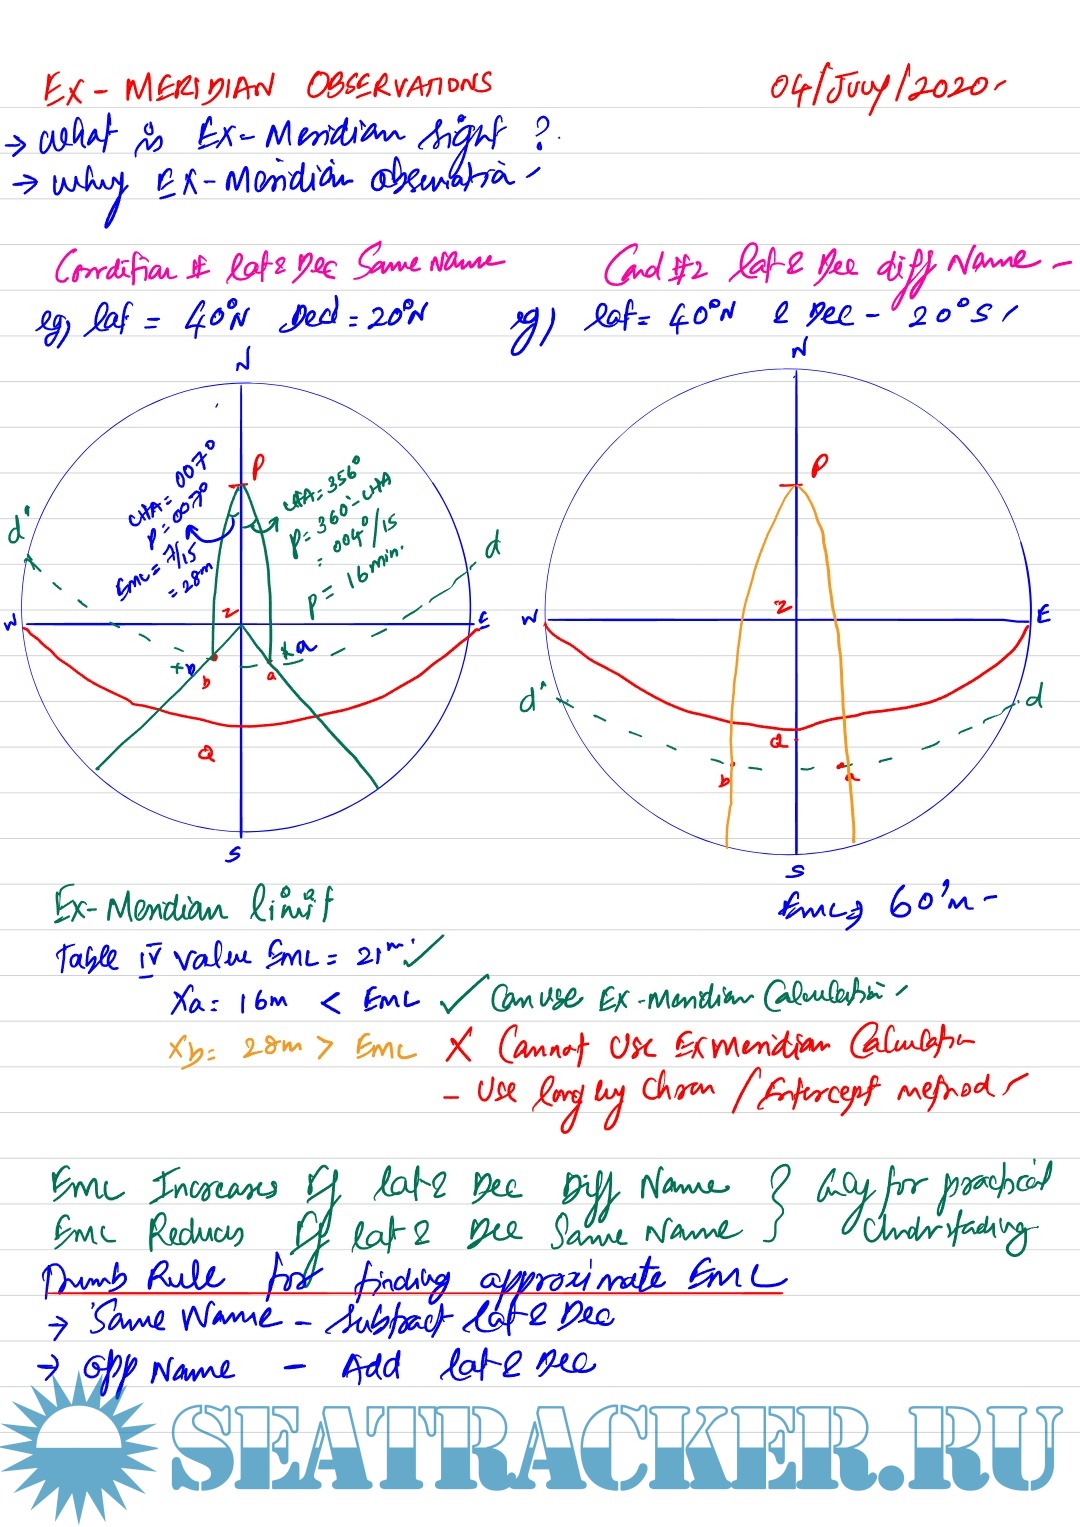 EX-MERIDIAN OBSERVATIONS 04/July/2020
→ What is Ex-Meridian sight ?
→ Why Ex-Meridian observation
Condition # Lat & Dec Same Name
eg) Lat = 40°N Decl = 20°N
Cond #2 Lat & Dec diff Name -
eg) Lat = 40°N & Dec - 20°S
N
LHA = 007°
P = 007°
EML = 7/15
= 28m
P
LHA = 356°
P = 360 - LHA
= 004°/15
P = 16min.
d'
d
W
Z
E
xb
b
xa
a
Q
S
N
P
W
Z
E
d'
d
Q
b
a
S
EML ⇒ 60'm -
Ex-Meridian limit
Table IV value EML = 21m ✓
Xa = 16m < EML ✓ Can use Ex-Meridian Calculation
Xb = 28m > EML X Cannot use Ex Meridian Calculation
- Use Long by Chron / Intercept method
EML Increases If Lat & Dec Diff Name } Only for practical
EML Reduces If Lat & Dec Same Name } Understading
Thumb Rule for finding approximate EML
→ Same Name - Subtract Lat & Dec
→ Opp Name - Add Lat & Dec
SEATRACKER.RU